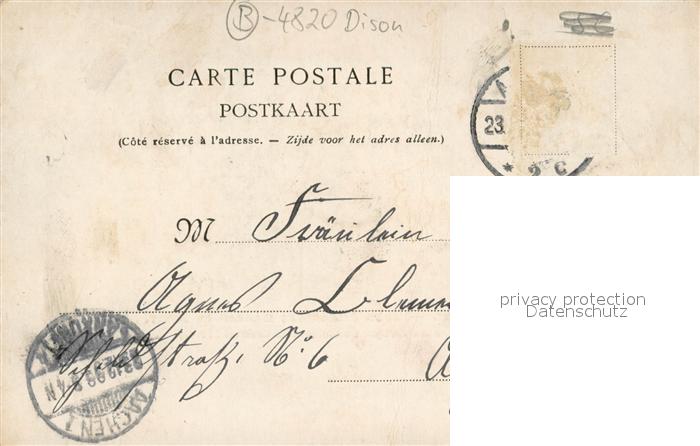 B-4820 Dison
CARTE POSTALE
POSTKAART
(Côté réservé à l'adresse. — Zijde voor het adres alleen.)
23.
2 C
M Fräulein
Agnes
straße No 6
AACHEN 1
privacy protection
Datenschutz